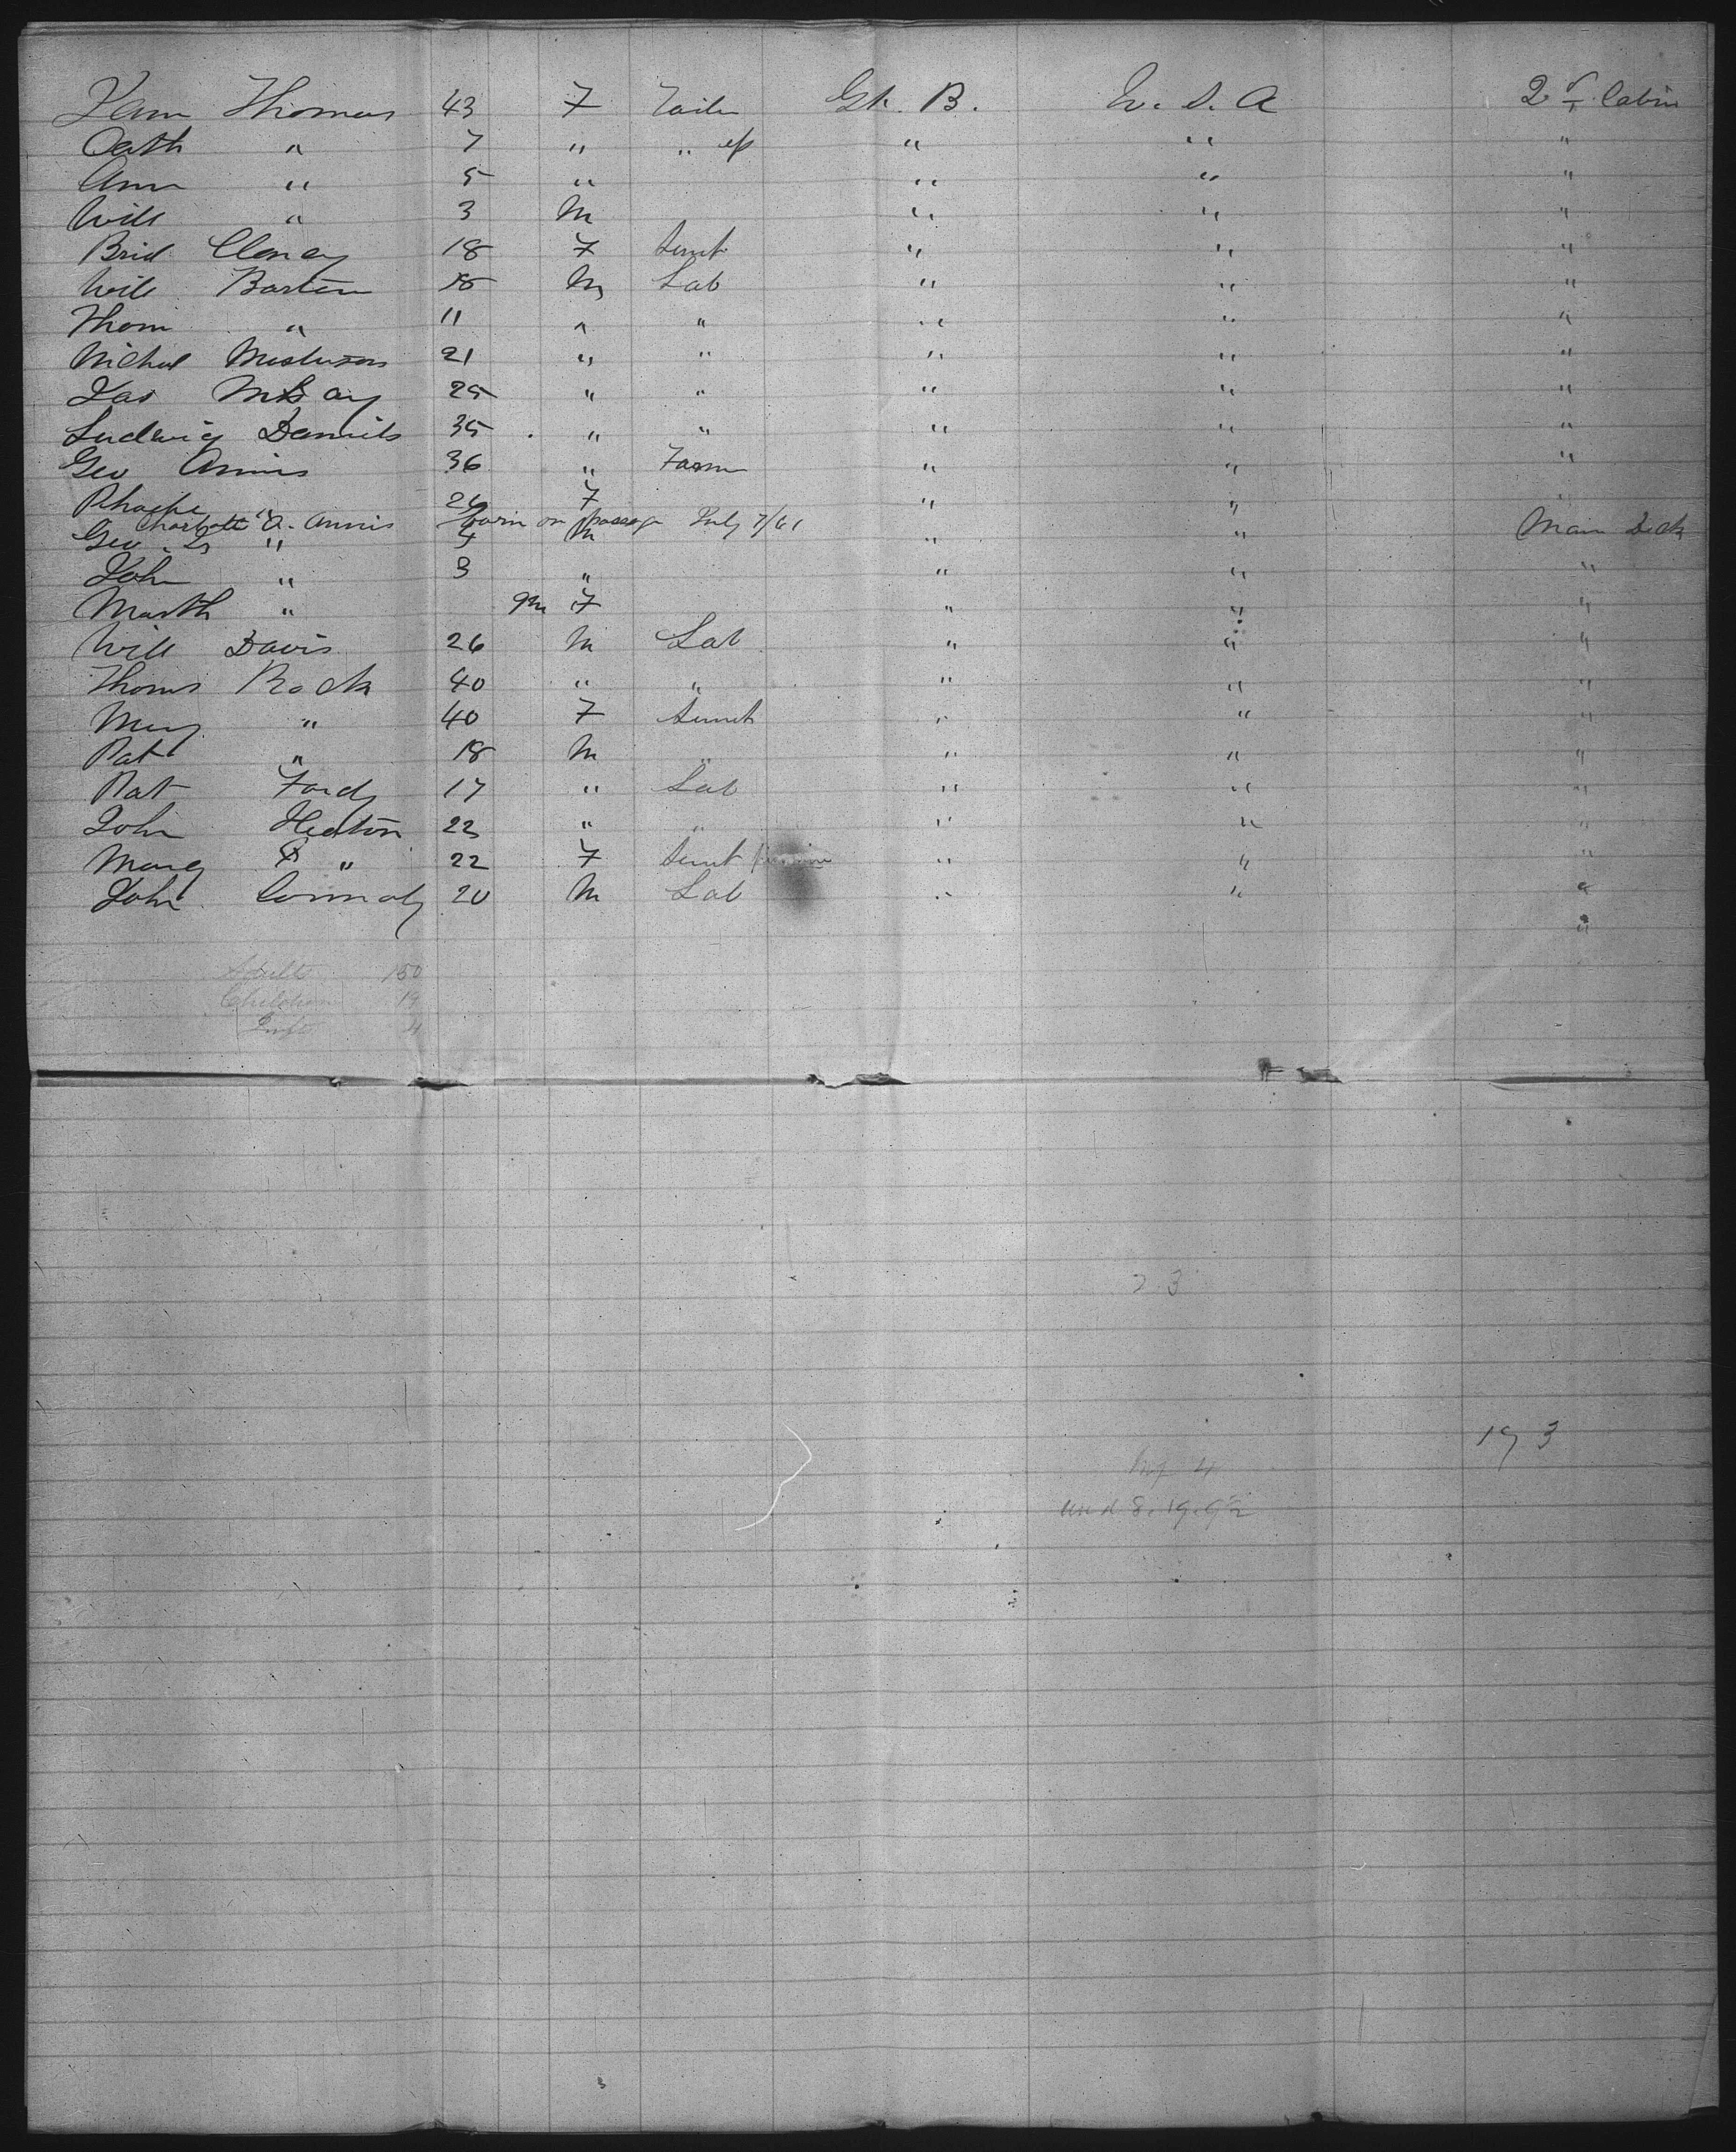 Thomas 43 F Gt. B. U. S. A 2d Cabin
Cath " 7 " " " " "
Ann " 5 " " " "
Will " 3 M " " "
Brid Clancy 18 F Servt " " "
Will 18 M Lab " " "
Thom " 11 " " " " "
Michael 21 " " " " "
Jas 25 " " " " "
Ludwig Daniels 35 " " " " "
Geo Annis 36 " Farm " " "
Phoebe " 26 F " "
Charlotte A. Annis born on passage July 7/61
Geo " 4 M " " Main Deck
John " 3 " " " "
Marth " 9m F " " "
Will Davis 26 M Lab " " "
Thoms Rock 40 " " " " "
Mary " 40 F Servt " " "
Pat " 18 M " " " "
Pat Fordy 17 " Lab " " "
John Heaton 22 " " " " "
Marg " 22 F Servt " " "
John Connoly 20 M Lab " " "
"
Adults 150
Children 19
Inft 4
23
193
Inf 4
und 8. 19.